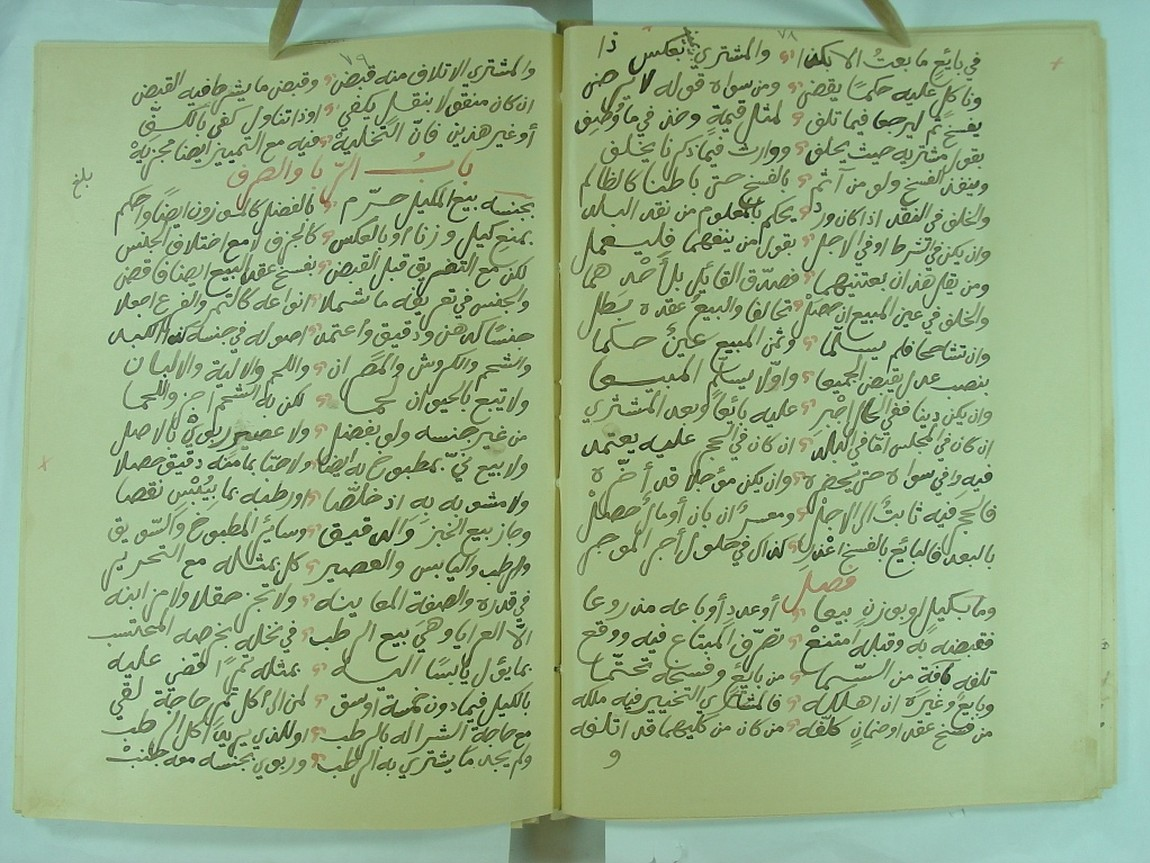 ٧٨
في بائع ما بعت الا كذا والمشتري بعكس ذا
وناكل عليه حكما يقضى ومن سواه قوله لا يرضى
يفسخ ثم ليرجعا فيما تلف لمثل قيمة وخذ في ما وصف
بقول مشتريه حيث يحلف ووارث فيما ذكرنا يخلف
وينفذ الفسخ ولو من آثم بالفسخ حتى باطنا كالظالم
والخلف في النقد اذا كان ورد يحكم بالمعلوم من نقد البلد
وان يكن في الشرط او في الاجل بقول من ينفيهما فليعمل
ومن يقل هذان بعتنيهما فصدق القائل بل أحدهما
والخلف في عين المبيع ان حصل تحالفا والبيع عقده بطل
وان تشاححا فلم يسلما وثمن المبيع عين حكما
بنصب عدل يقبض الجميعا واولا يسلم المبيعا
وان يكن دينا ففي الحال اجبر عليه بائعا وبعد المشتري
ان كان في المجلس اما في البلد ان كان في الحجر عليه يعتمد
فيه وفي سواه حتى يحضره وان يكن مؤجلا قد أخره
فالحجر فيه ثابت الى الاجل ومعسر ان بان أو مال حصل
بالبعد فالبائع بالفسخ اعذر كذاك في حلول أجر المؤجر
فصل
وما بكيل او بوزن بيعا أو عدد أو باعه مذروعا
فقبضه به وقبله امتنع تصرف المبتاع فيه ووقع
تلفه بآفة من السما من بائع وفسخه تحتما
وبائع وغيره ان اهلكه فالمشتري التخيير فيه ملكه
من فسخ عقد او ضمان كلفه من كان من كليهما قد اتلفه
و
٧٩
والمشتري الاتلاف منه قبض وقبض ما يشرط فيه القبض
ان كان منقولا بنقل يكفي او ذا تناول كفى بالكف
أو غير هذين فان التخليه فيه مع التمييز ايضا مجزيه
باب الربا والصرف
بلغ
بجنسه بيع المكيل حرم بالفضل كالموزون ايضا واحكم
بمنع كيل وزنا أو بالعكس كالجزف لا مع اختلاف الجنس
لكن مع التفريق قبل القبض بفسخ عقد البيع ايضا فاقض
والجنس في تعريفه ما شملا انواعه كالتمر والفرع اجعلا
جنسا كدهن ودقيق واعتمد اصوله في جنسه كذا الكبد
والشحم والكروش والمصران واللحم والالية والالبان
ولا يبع بالحيوان لحما لكن به الشحم اجز واللحما
من غير جنسه ولو بفضل ولا عصير ربوي بالاصل
ولا بيع ني بمطبوخ له ايضا ولا حبا بما منه دقيق حصلا
ولا مشوبه به اذ خلصا او رطبه بما بيبس نقصا
وجاز بيع الخبز والدقيق وسائر المطبوخ والسويق
والرطب واليابس والعصير كل بمثله مع التحرير
في قدره والصفة المعاينه ولا تجز محاقلا ولا مزابنه
الا العرايا وهي بيع الرطب في نخله بخرصه المحتسب
بما يؤل يابسا اليه بمثله تمرا قضي عليه
بالكيل فيما دون خمسة اوسق لمن الى أكل تمر حاجة لقي
مع حاجة الشرا له بالرطب او للذي يريد اكل الرطب
ولم يجد ما يشتري به الرطب وربوي بجنسه معه جلب